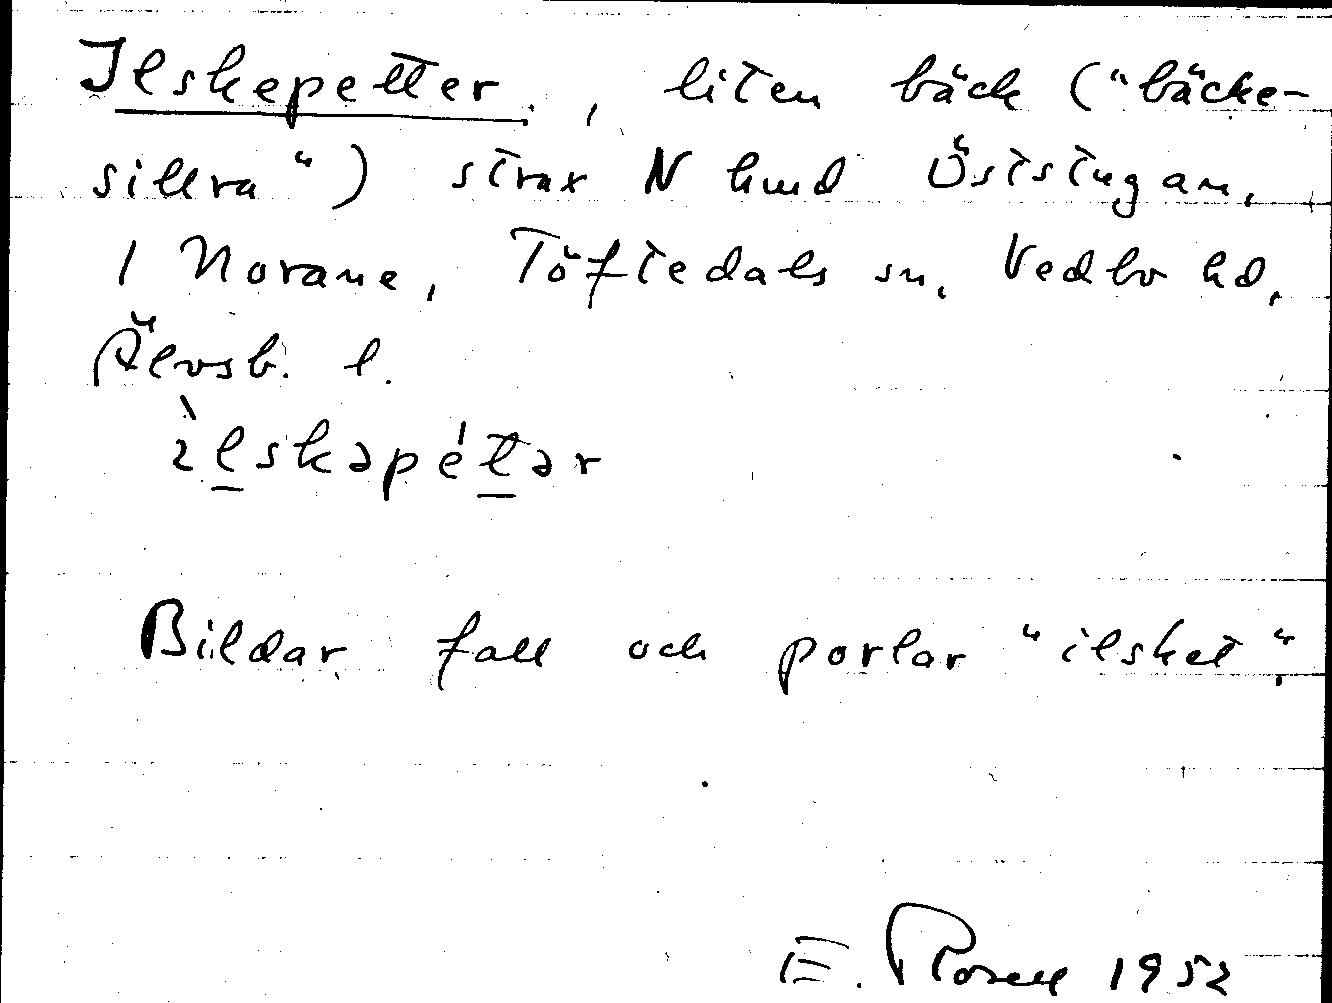 Ilskepetter, liten bäck ("bäcke-
sillra") strax N hmd Öststugan,
i Norane, Töftedals sn, Vedbo hd,
Älvsb. l.
ìlskəpétər
Bildar fall och porlar "ilsket".
E. Rosell 1952